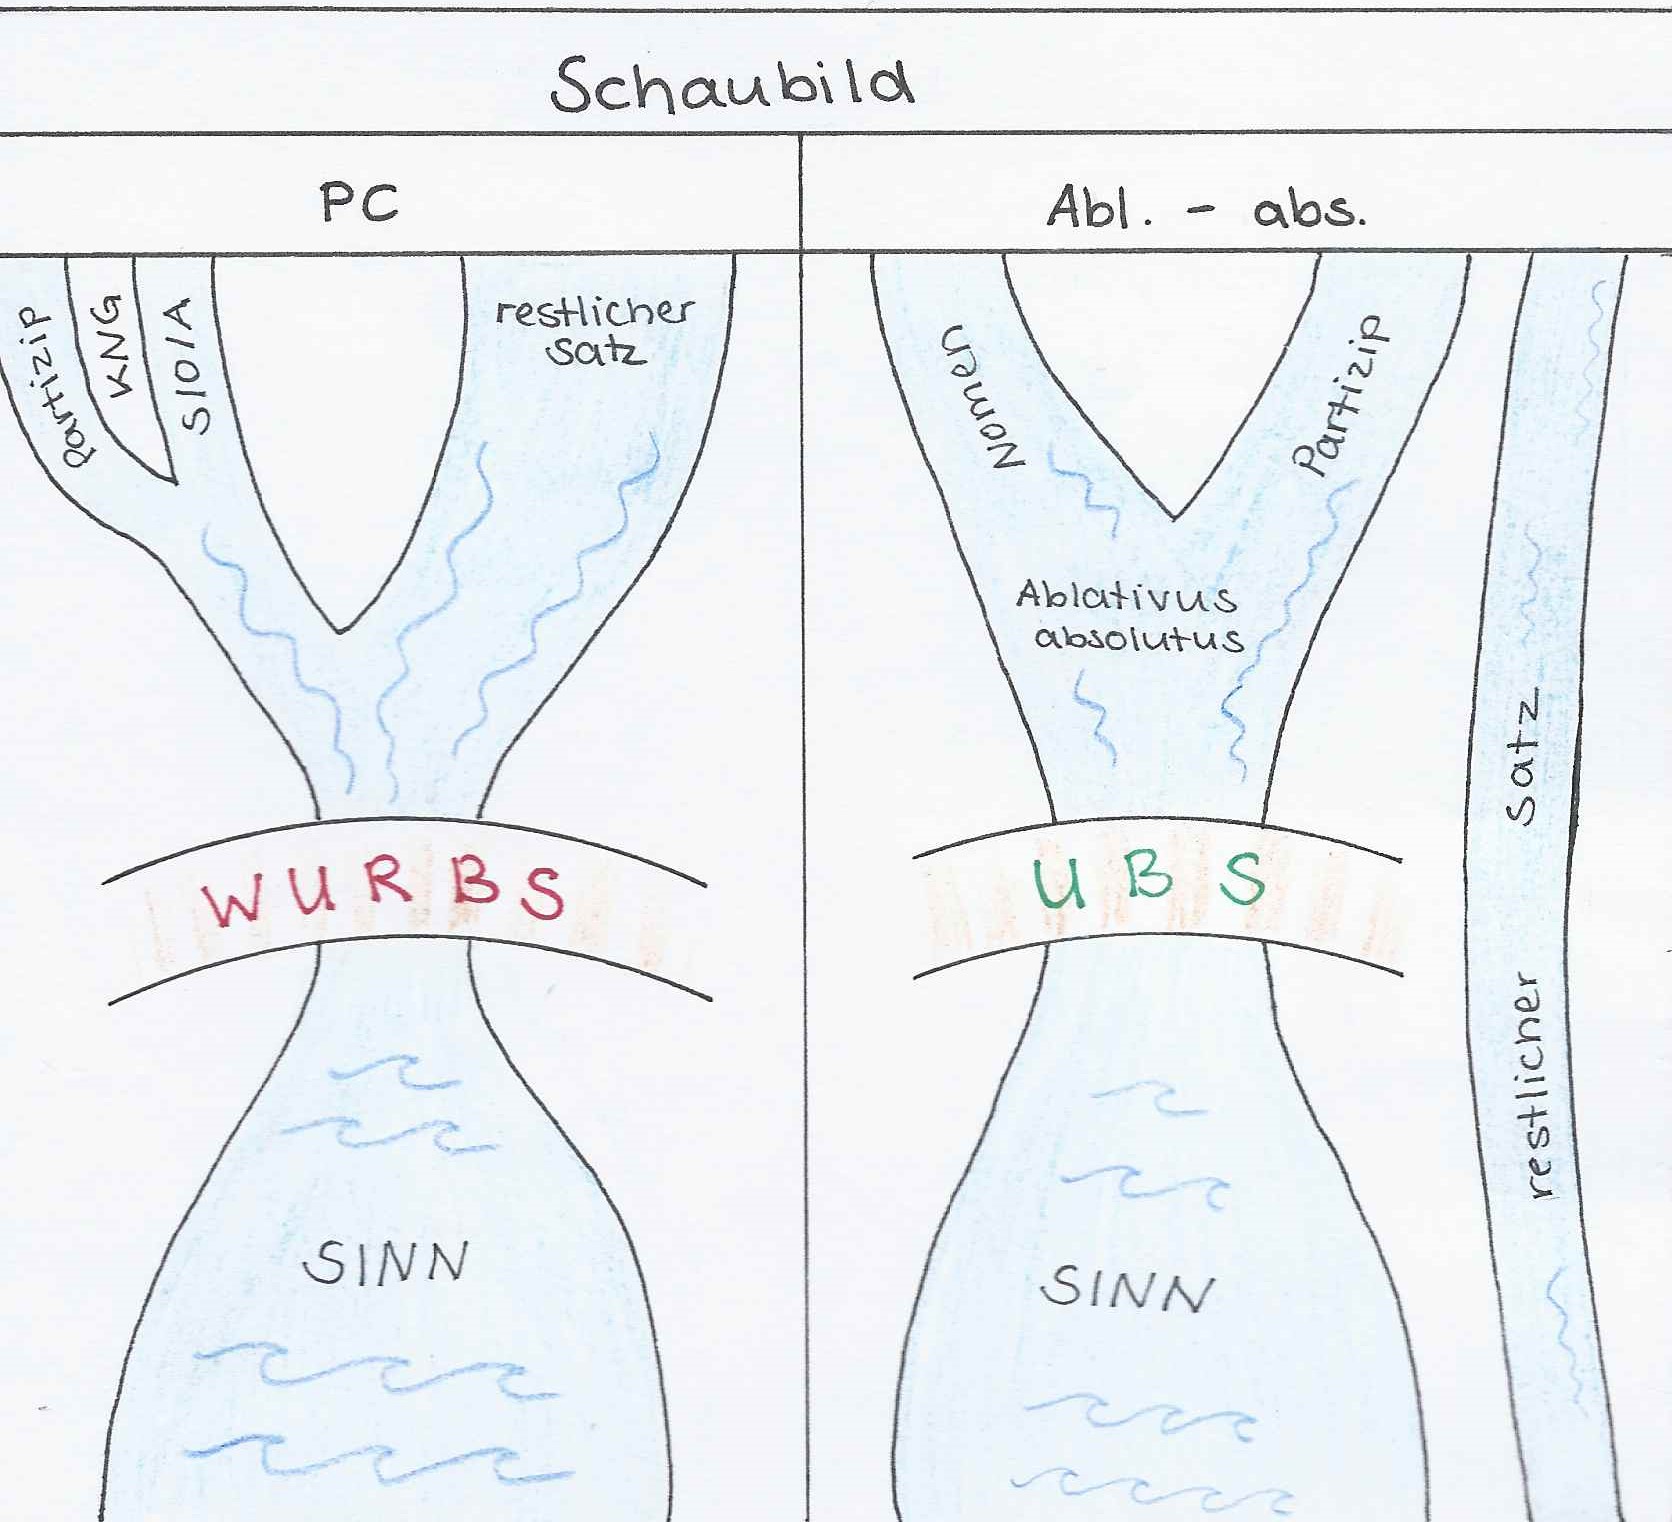 Schaubild
PC
Abl. - abs.
Partizip
KNG
S/O/A
restlicher
satz
Nomen
Partizip
Ablativus
absolutus
restlicher satz
WURBS
UBS
SINN
SINN